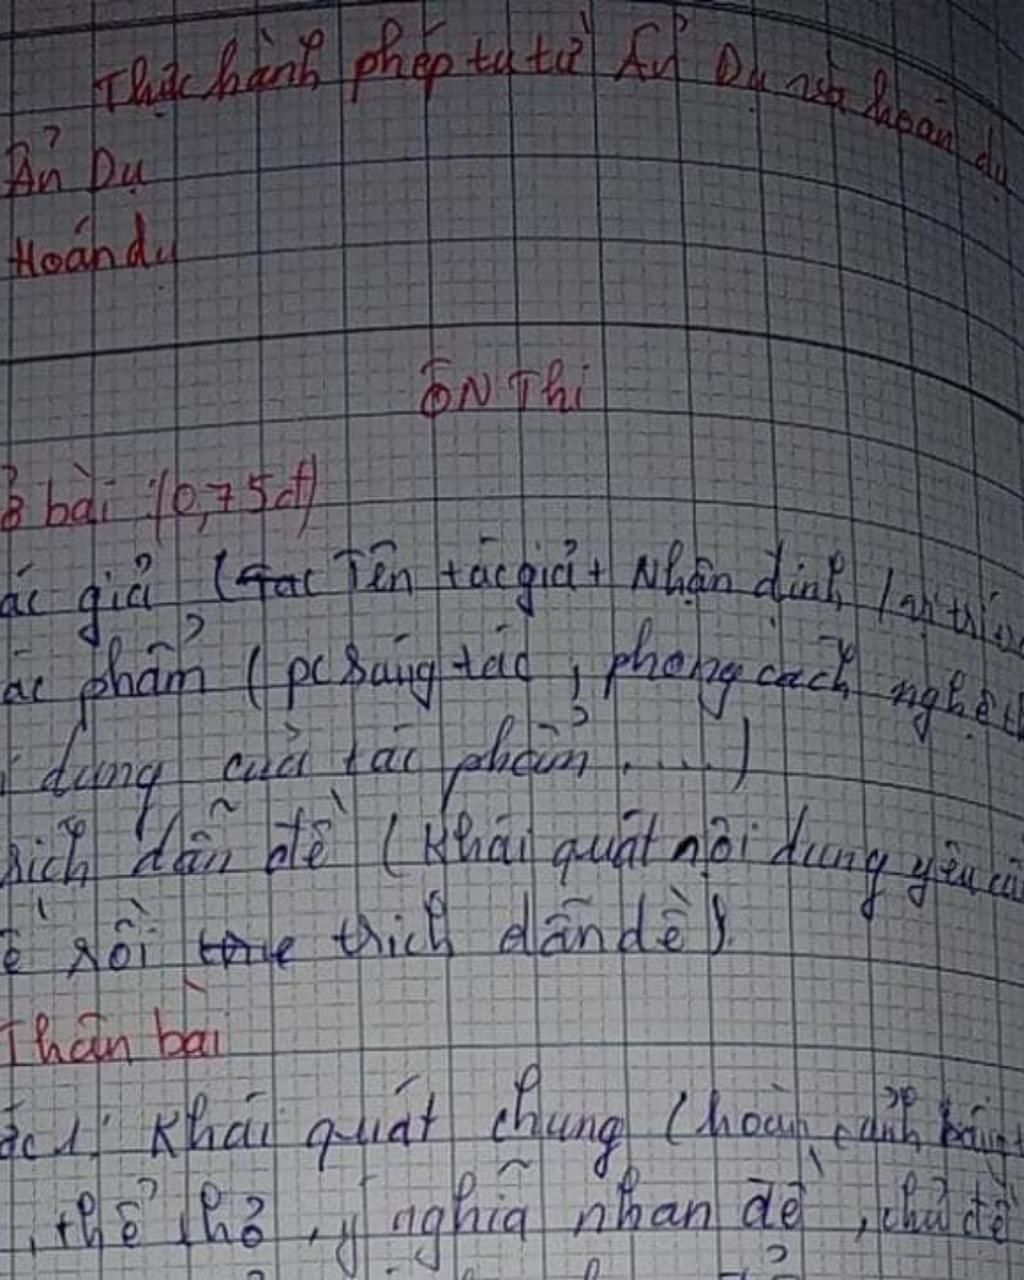 Thực hành phép tu từ Ẩn Dụ và hoán dụ
Ẩn Dụ
Hoán dụ
ÔN Thi
ở bài (0,75đ)
ác giả (Tên tác giả + Nhận định / vị trí
ác phẩm (pc sáng tác, phong cách nghệ
dung của tác phẩm.....)
rích dẫn đề (Khái quát nội dung yêu cầ
ề rồi trích dẫn đề).
Thân bài
ớc 1: Khái quát chung (hoàn cảnh sáng
, thể thơ, ý nghĩa nhan đề, chủ đề